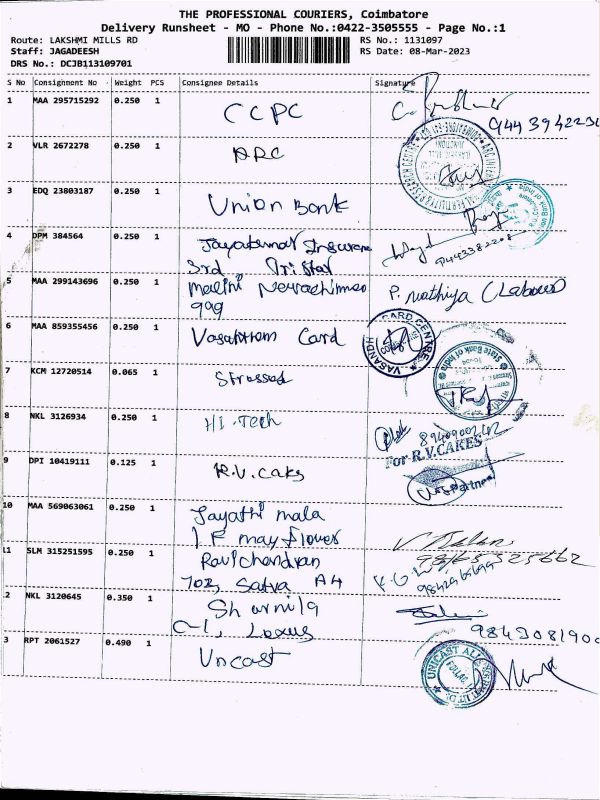 THE PROFESSIONAL COURIERS, Coimbatore
Delivery Runsheet - MO - Phone No.:0422-3505555 - Page No.:1
Route: LAKSHMI MILLS RD RS No.: 1131097
Staff: JAGADEESH RS Date: 08-Mar-2023
DRS No.: DCJB113109701
S No Consignment No Weight PCS Consignee Details Signature
1 MAA 295715292 0.250 1 CCPC
9443942236
2 VLR 2672278 0.250 1 ARC
3 EDQ 23803187 0.250 1 Union Bank
4 DPM 384564 0.250 1 Jayakumar Insurance
3rd Tristar
9443382208
5 MAA 299143696 0.250 1 malini
999
P. mathiya (Labour)
6 MAA 859355456 0.250 1 Vasantham Card
VASANDH CARD CENTRE
7 KCM 12720514 0.065 1 Stressed
State Bank of India
8 NKL 3126934 0.250 1 HI-Tech
8940900242
For R.V.CAKES
9 DPI 10419111 0.125 1 R.V. caks
Partner
10 MAA 569063061 0.250 1 Jayathi mala
1 F may flower
11 SLM 315251595 0.250 1 Ravichandran
702, Satva A4
.2 NKL 3120645 0.350 1 Sharmila
C-1, Lexus
984308190
3 RPT 2061527 0.490 1 Uncast
UNICAST ALLOYS